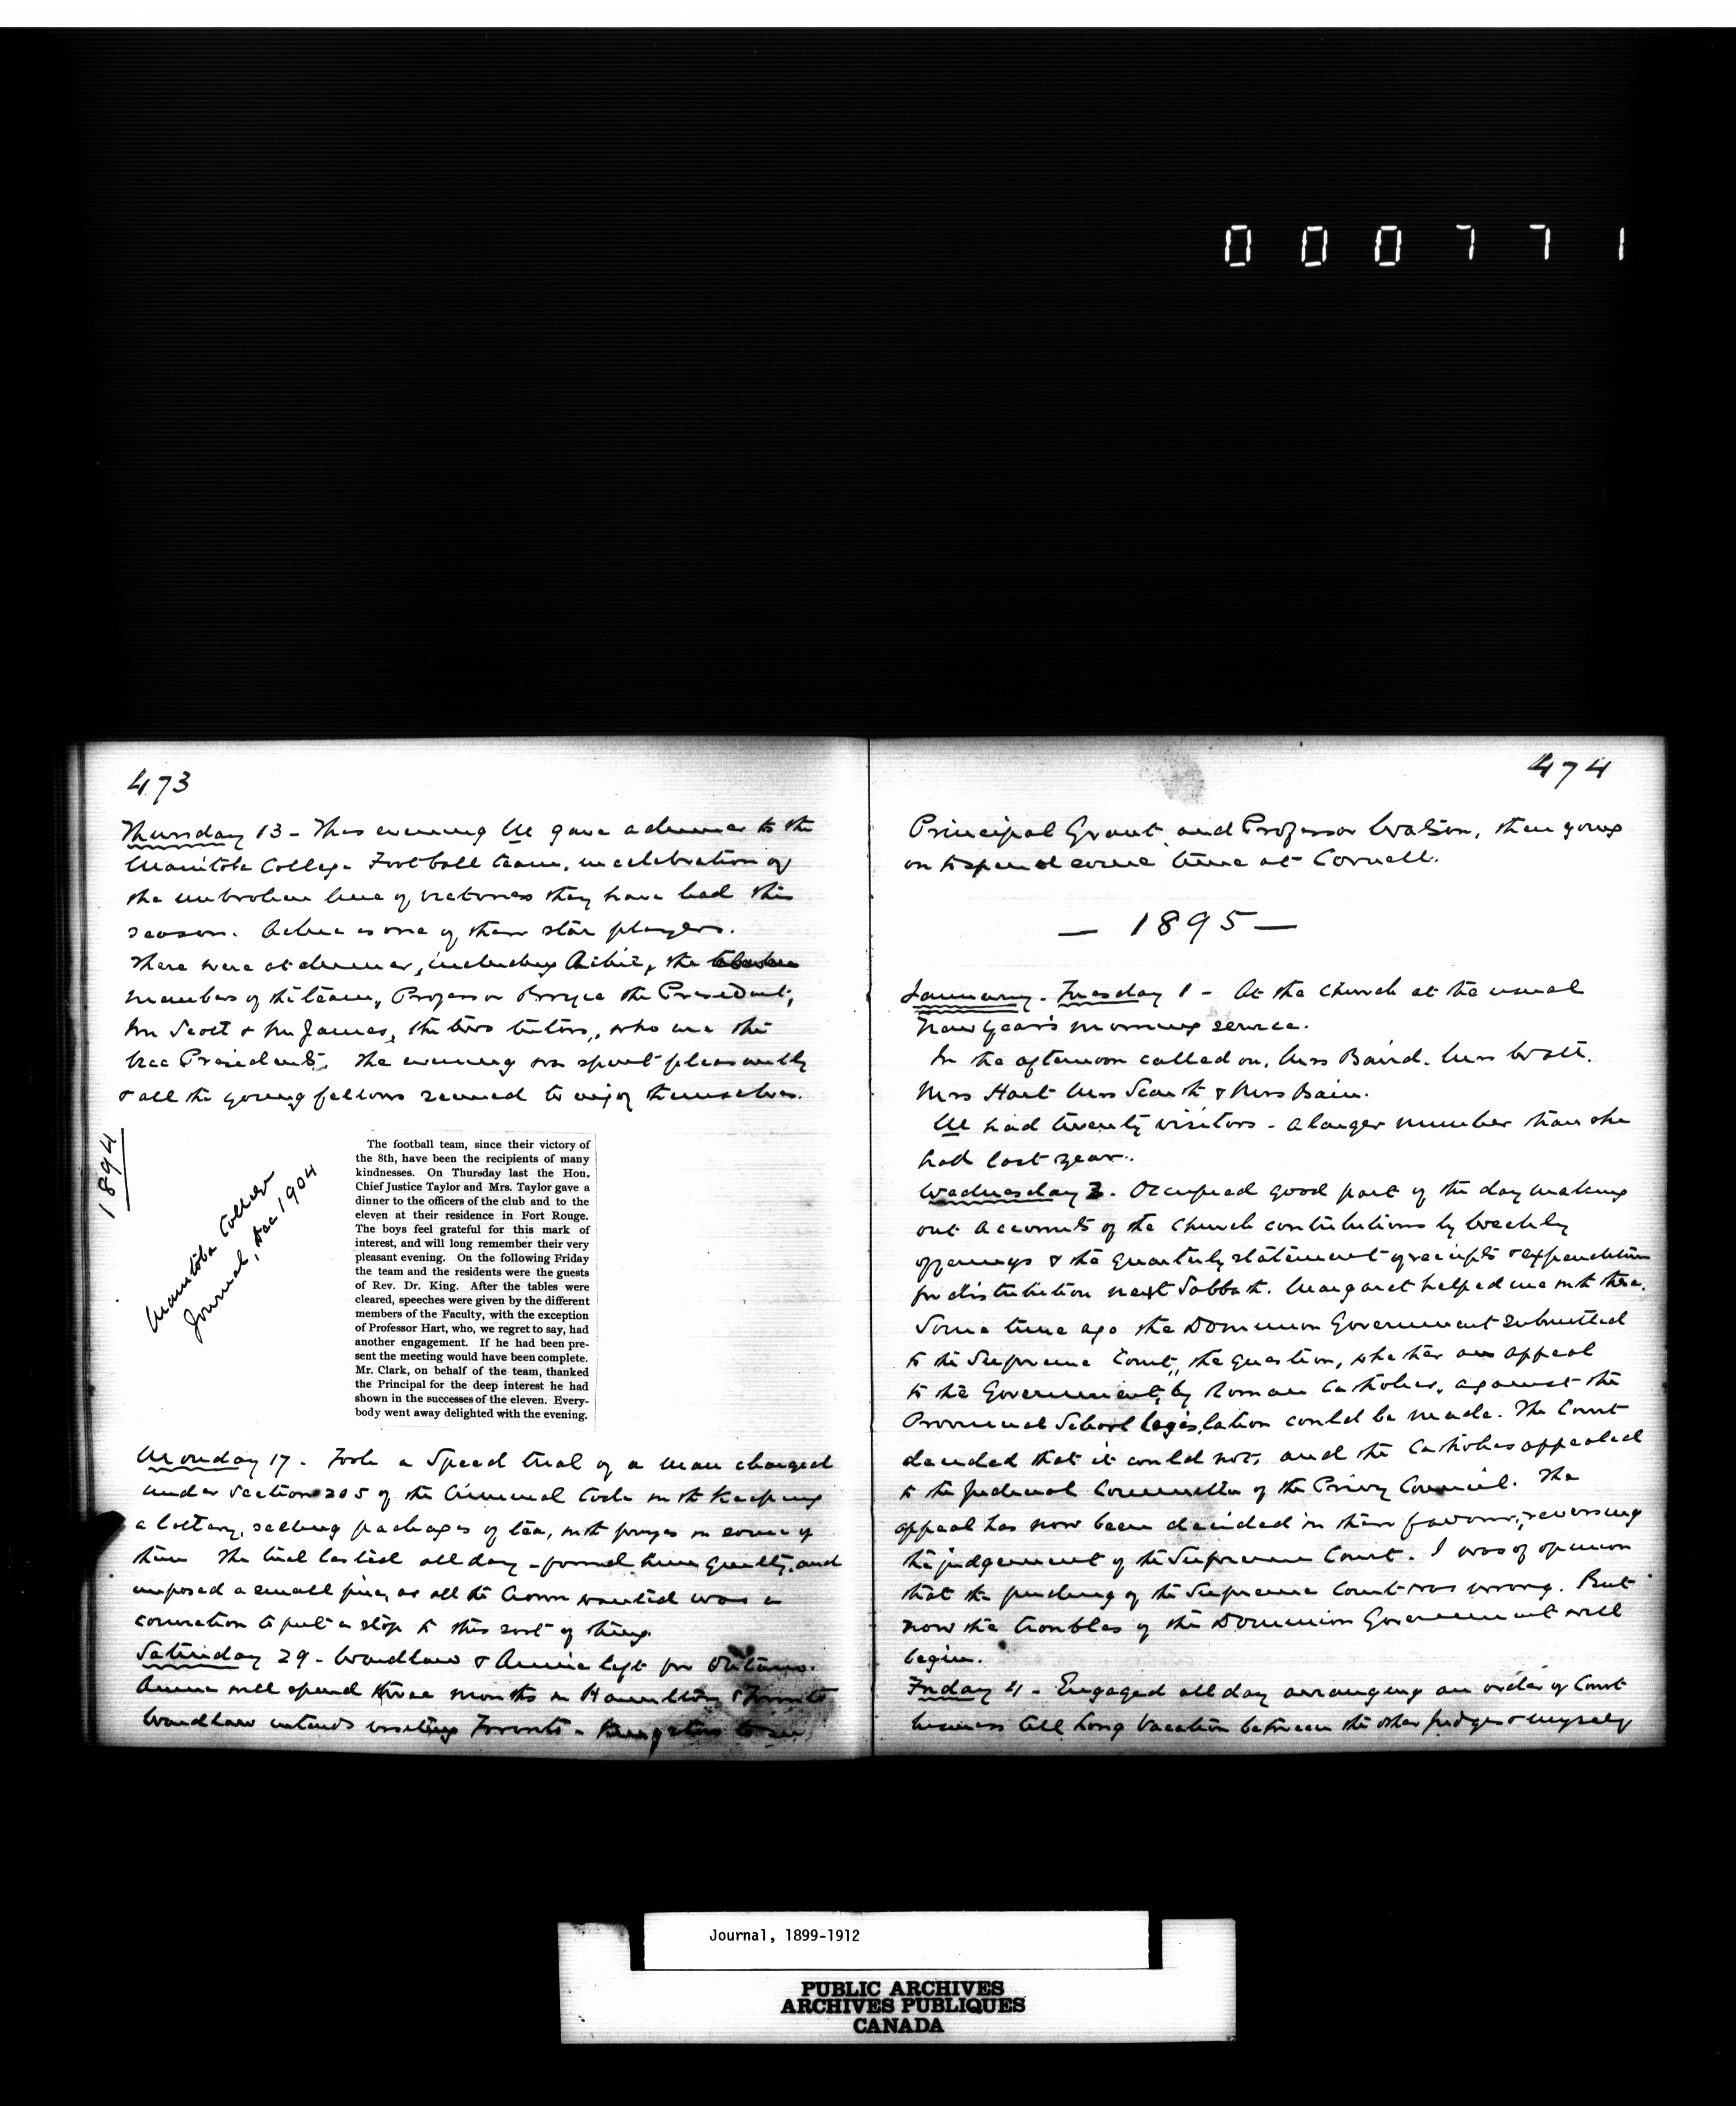 000771
473
Thursday 13 - This evening M gave a dinner to the
Manitoba College Football team, in celebration of
the unbroken line of victories they have had this
season. Archie is one of their star players.
There were at dinner, including Archie, the
members of the team, Professor Bryce the President,
Mr Scott & Mr James, the two tutors, who are the
Vice Presidents. The evening was spent pleasantly
& all the young fellows seemed to enjoy themselves.
1894
Manitoba College
Journal, Dec 1904
The football team, since their victory of
the 8th, have been the recipients of many
kindnesses. On Thursday last the Hon.
Chief Justice Taylor and Mrs. Taylor gave a
dinner to the officers of the club and to the
eleven at their residence in Fort Rouge.
The boys feel grateful for this mark of
interest, and will long remember their very
pleasant evening. On the following Friday
the team and the residents were the guests
of Rev. Dr. King. After the tables were
cleared, speeches were given by the different
members of the Faculty, with the exception
of Professor Hart, who, we regret to say, had
another engagement. If he had been pre-
sent the meeting would have been complete.
Mr. Clark, on behalf of the team, thanked
the Principal for the deep interest he had
shown in the successes of the eleven. Every-
body went away delighted with the evening.
Monday 17 - Took a Speed trial of a man charged
under section 205 of the Criminal Code with keeping
a lottery, selling packages of tea, with prizes in some of
them The trial lasted all day - found him guilty, and
imposed a small fine, as all the Crown wanted was a
conviction to put a stop to this sort of thing.
Saturday 29 - Wardlaw & Annie left for Ontario.
Annie will spend three months in Hamilton & Toronto
Wardlaw intends visiting Toronto - Kingston to see
474
Principal Grant and Professor Watson, then going
on to spend some time at Cornell.
— 1895 —
January - Tuesday 1 - At the Church at the usual
New Year's morning service.
In the afternoon called on, Mrs Baird. Mrs Watt.
Mrs Hart Mrs Scarth & Mrs Bain.
M had twenty visitors - a larger number than she
had last year.
Wednesday 2 - Occupied good part of the day making
out accounts of the Church contributions by weekly
offerings & the quarterly statement of receipts & expenditure
for distribution next Sabbath. Margaret helped me with these.
Some time ago the Dominion Government submitted
to the Supreme Court, the question, whether an appeal
to the Government, by Roman Catholics, against the
Provincial School legislation could be made. The Court
decided that it could not, and the Catholics appealed
to the Judicial Committee of the Privy Council. The
appeal has now been decided in their favour, reversing
the judgement of the Supreme Court. I was of opinion
that the finding of the Supreme Court was wrong. But
now the troubles of the Dominion Government will
begin.
Friday 4 - Engaged all day arranging an order of Court
business till Long Vacation between the other judges & myself
Journal, 1899-1912
PUBLIC ARCHIVES
ARCHIVES PUBLIQUES
CANADA